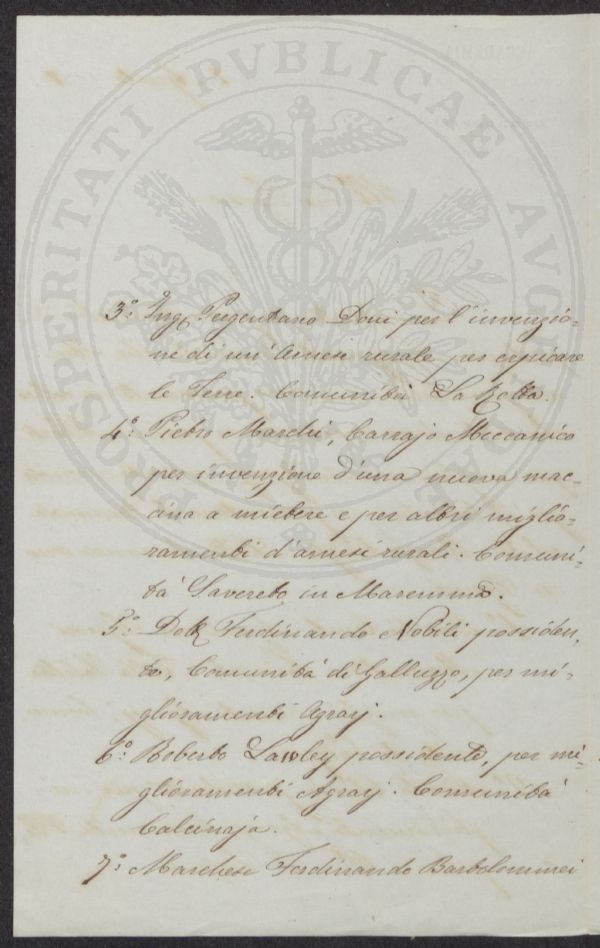 PROSPERITATI PVBLICAE AVGENDAE
3.° Ing. Pergentano Doni per l'invenzio-
ne di un' Arnese rurale per erpicare
le Terre. Comunità La Rotta.
4.° Pietro Marchi, Carrajo Meccanico
per invenzione d'una nuova mac-
cina a mietere e per altri miglio-
ramenti d'arnesi rurali. Comuni-
tà Savereto in Maremma.
5.° Dott Ferdinando Nobili possiden-
te, Comunità di Galluzzo, per mi-
glioramenti Agrarj.
6.° Roberto Lawley possidente, per mi-
glioramenti Agrarj. Comunità
Calcinaja.
7.° Marchese Ferdinando Bartolommei